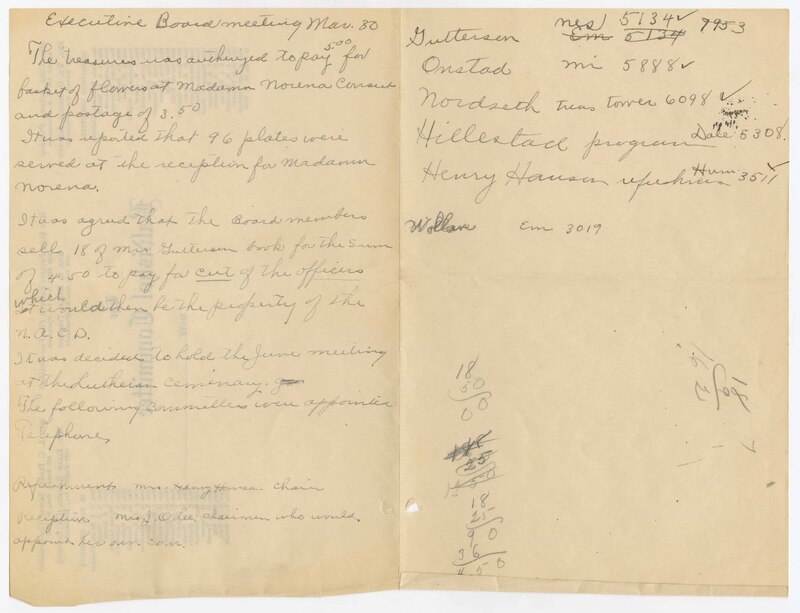 Executive Board meeting Mar. 30
The Treasures was authorized to pay 5.00 for
basket of flowers at Madamn Norena Consert
and postage of 3.50
It was reported that 96 plates were
served at the reception for Madamn
Norena.
It was agreed that the Board members
sell 18 of Mrs Guttersen book for the sum
of 4.50 to pay for cut of the officers
which
it would then be the property of the
N.A.C.D.
It was decided to hold the June meeting
at the Lutheran Cemenary.
The following committees were appointed
Telephone,
Refreshments Mrs. Henry Hansen Chair
Reception Mrs. J. Odee, chairmen who would
appoint her own com.
Guttersen nes 5134 ✓ 7953
Em 5134
Onstad mi 5888 ✓
Nordseth tower 6098 ✓
Hillestad program Dale 5308.
Henry Hansen Hum 3511 ✓
Em 3019
18
50
00
18
25
90
36
4.50